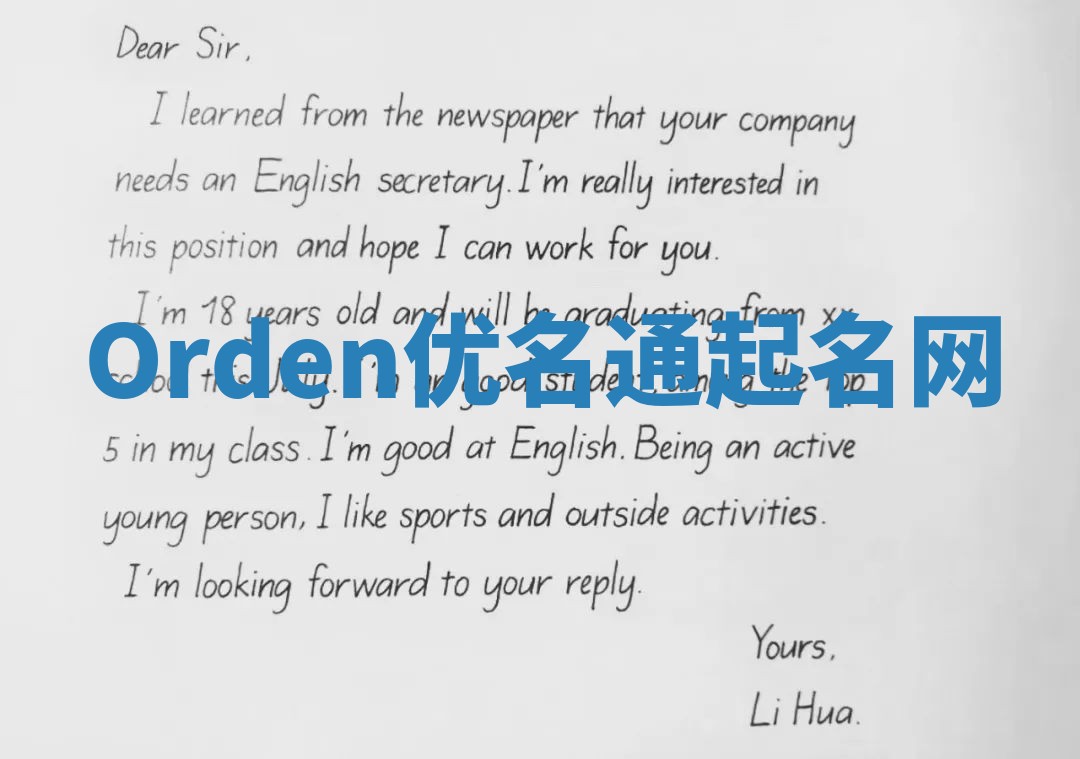 Dear Sir,
I learned from the newspaper that your company
needs an English secretary. I'm really interested in
this position and hope I can work for you.
I'm 18 years old and will be graduating from xx
Orden优名通起名网
school this July. I'm a good student, among the top
5 in my class. I'm good at English. Being an active
young person, I like sports and outside activities.
I'm looking forward to your reply.
Yours,
Li Hua.